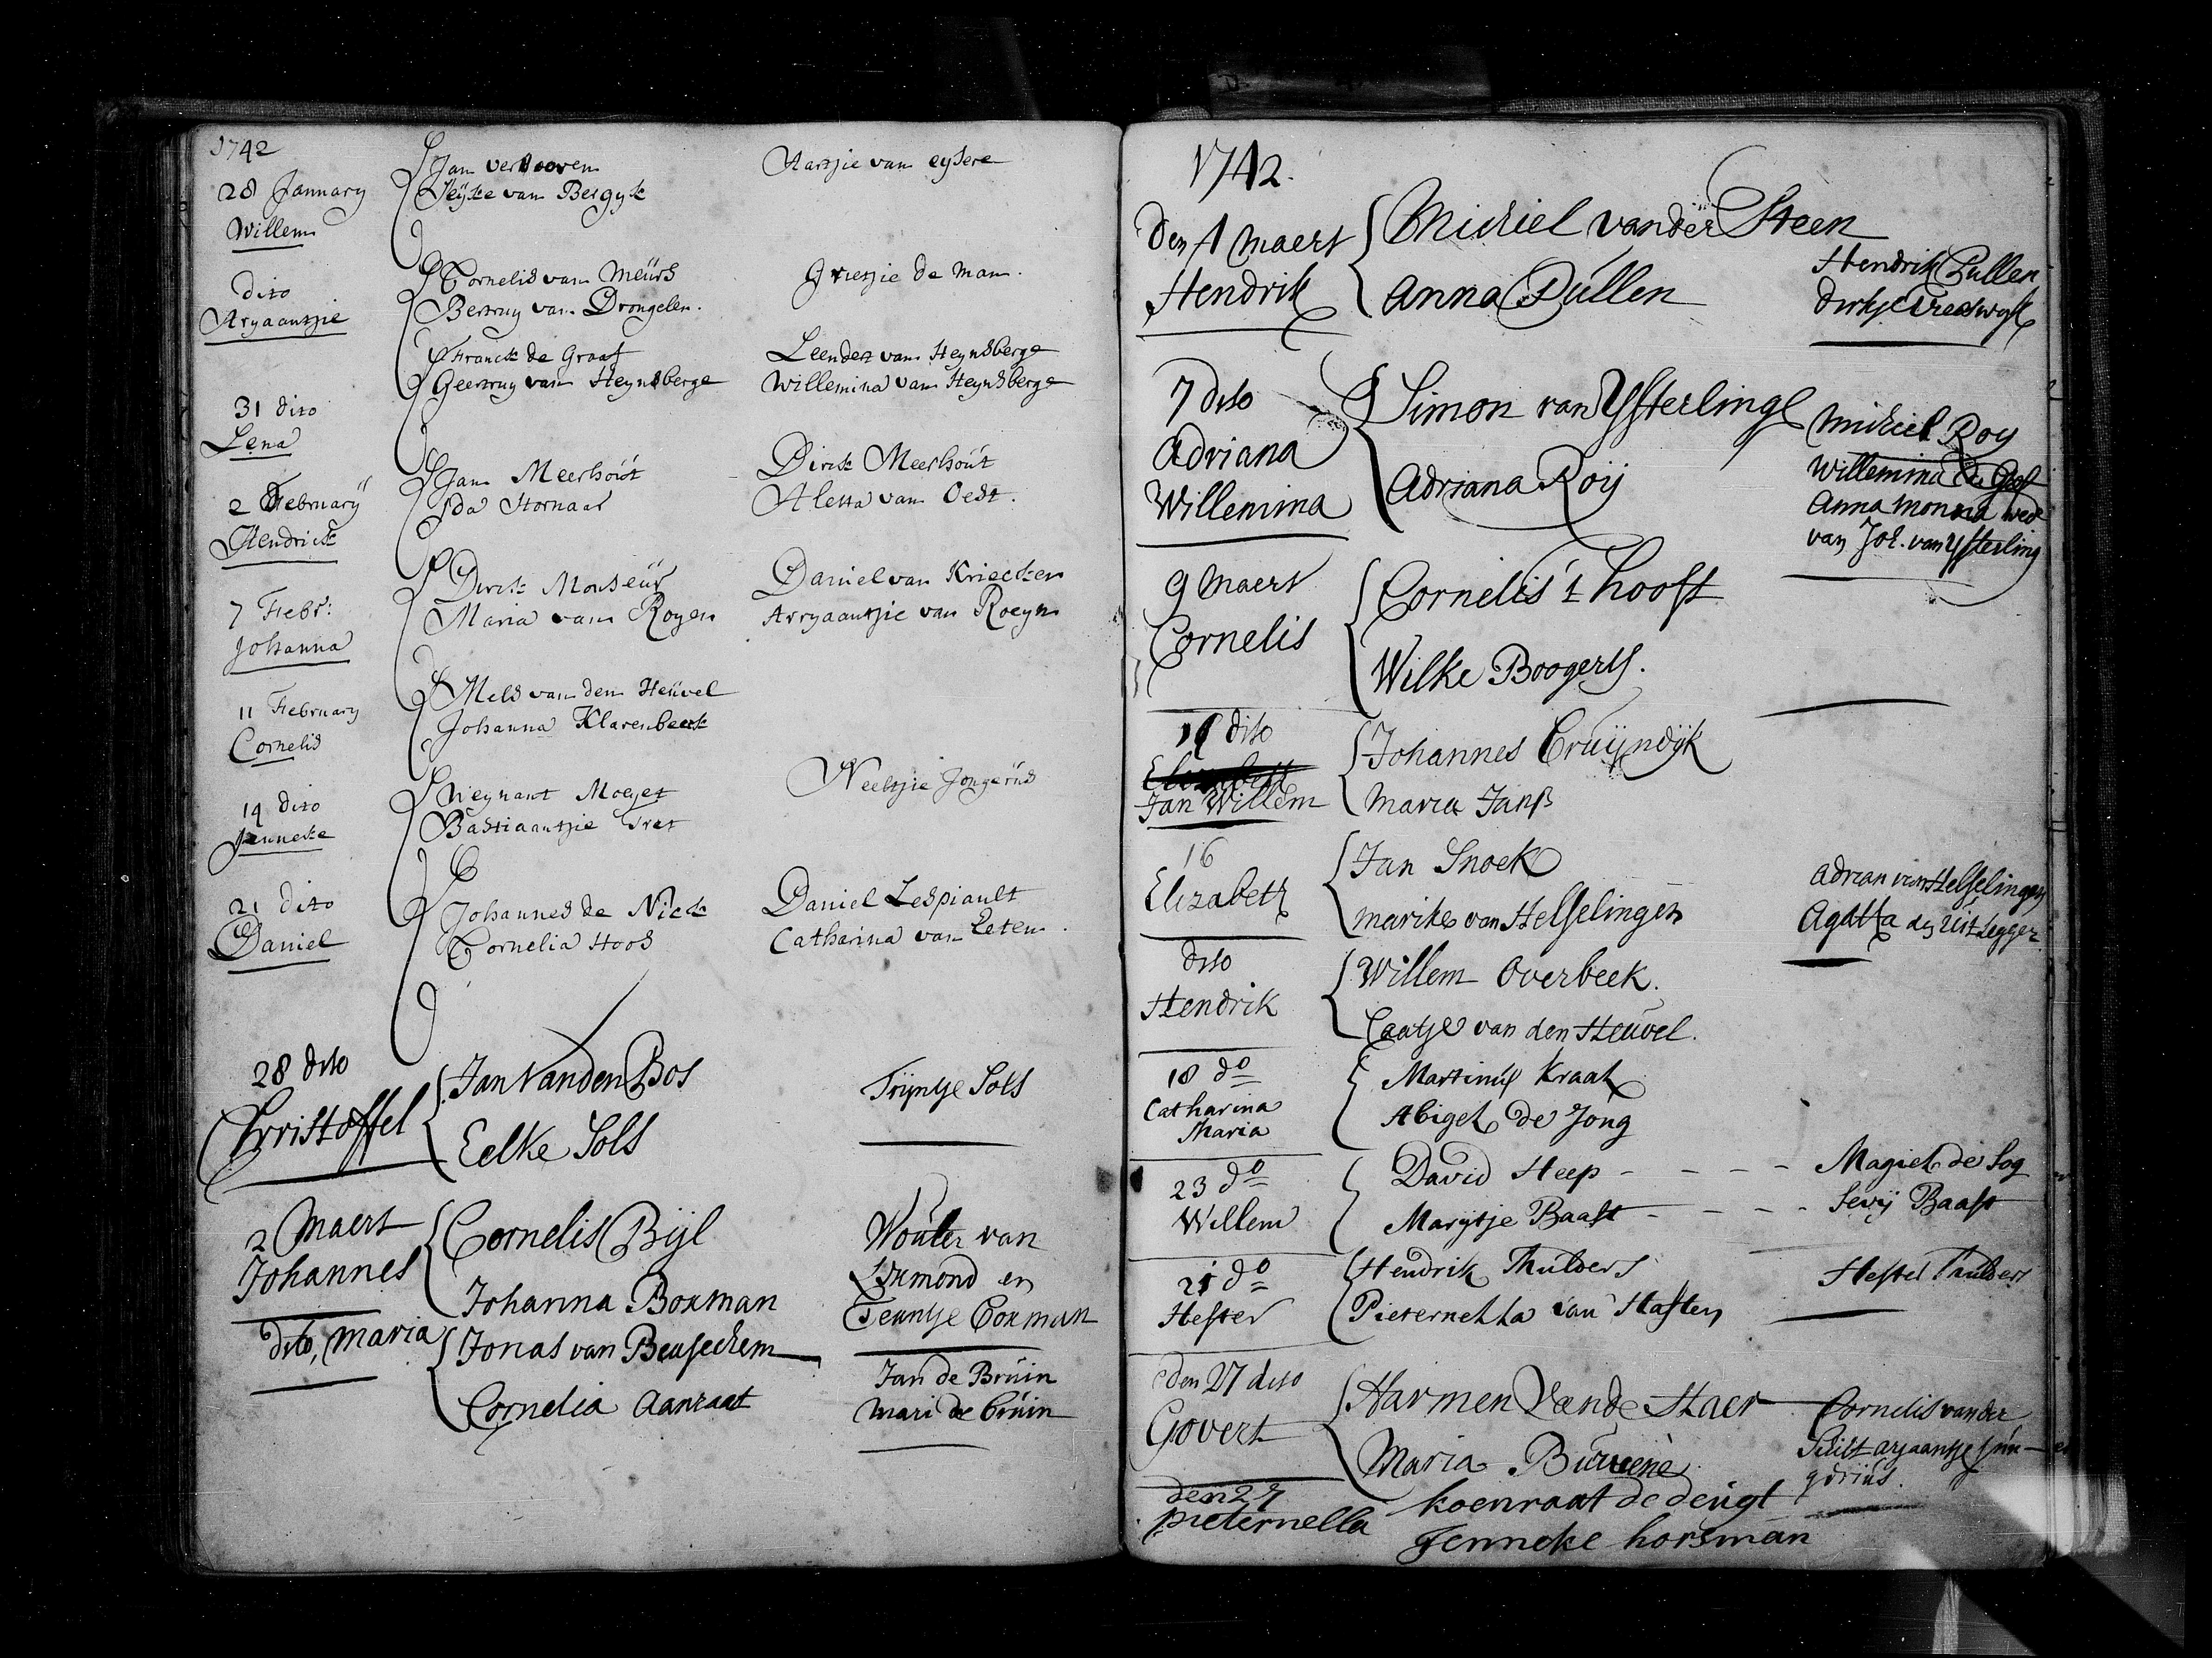 1742
28 January
Willem
Jan verhoeven
Neijske van Bergyk
Aartjie van eysere
dito
Aryaantjie
Cornelis van Meürs
Bertruy van Drongelen.
Grietjie de Man.
31 dito
Lena
Franck de Graaf
Geertruy van Heynsberge
Leendert van Heynsberge
Willemina van Heynsberge
2 February
Hendrick
Jan Meerhoút
Ida Hornaar
Dirck Meerhoút
Aletta van Oest.
7 Febr:
Johanna
Dirck Monseür
Maria van Royen
Daniel van Kriecken
Arryaantjie van Roeyn
11 February
Cornelis
Mels van den Heüvel
Johanna Klarenbeeck
14 dito
Jenneke
Weynant Moeyet
Bastiaantjie Tret
Neeltjie Jongerüs
21 dito
Daniel
Johannes de Nick
Cornelia Hoos
Daniel Lespiault
Catharina van Eeten.
28 dito
Christoffel
Jan Vanden Bos
Eelke Sols
Trijntje Sols
2 Maert
Johannes
Cornelis Bijl
Johanna Boxman
Wouter van
Ysumond en
Teuntje Boxman
dito, Maria
Jonas van Beusechem
Cornelia Aanraat
Jan de Brúin
Mari de brúin
1742.
Den 1 maert
Hendrik
Michiel vander Steen
Anna Púllen
Hendrik Pullen
Dirkje Vreeswyk
7 dito
Adriana
Willemina
Simon van Ysterlinge
Adriana Roij
Michiel Roy
Willemina de
Anna monna wed
van Joh. van Ysterling
9 Maert
Cornelis
Cornelis 't hooft
Wilke Boogerts.
dito
Jan Willem
Johannes Cruijndijk
Maria Janß
16
Elizabeth
Jan Snoek
marike van Hesselingen
Adrian van Hesselingen
Agatha den Uitlegger
dito
Hendrik
Willem Overbeek.
Caatje van den Heüvel.
18 do
Catharina
Maria
Martinus Kraat
Abigel de Jong
23 do
Willem
David Heep - - - -
Marijtje Baast - - - -
Magiel de Log
Levij Baast
21 do
Hester
Hendrik Mulders
Pieternella van Haften
Hester Mulders
den 27 dito
Govert
Harmen Vande Haer
Maria
Cornelis vander
arjaantje jun-
gdriús.
den 27
pieternella
koenraat de deugt
Jenneke horsman